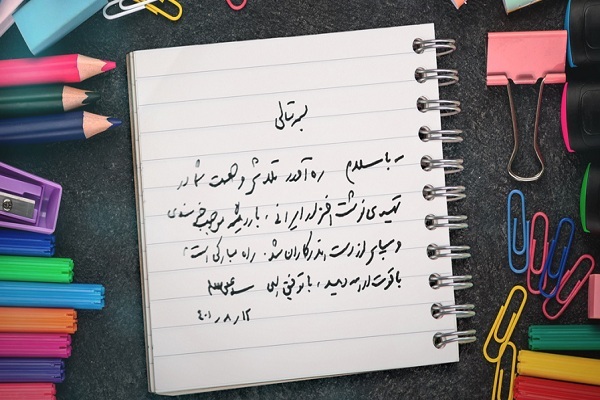 بسمه‌تعالی
ـ با سلام ره‌آورد تلاش و همت شما در
تولید نوشت‌افزار ایرانی، بار دیگر موجب خرسندی
و سپاس از دست‌اندرکاران شد. راه مبارکی است؛
با قوت ادامه دهید، با توفیق الهی سیدعلی
۱۲ ر ۸ ر ۴۰۱